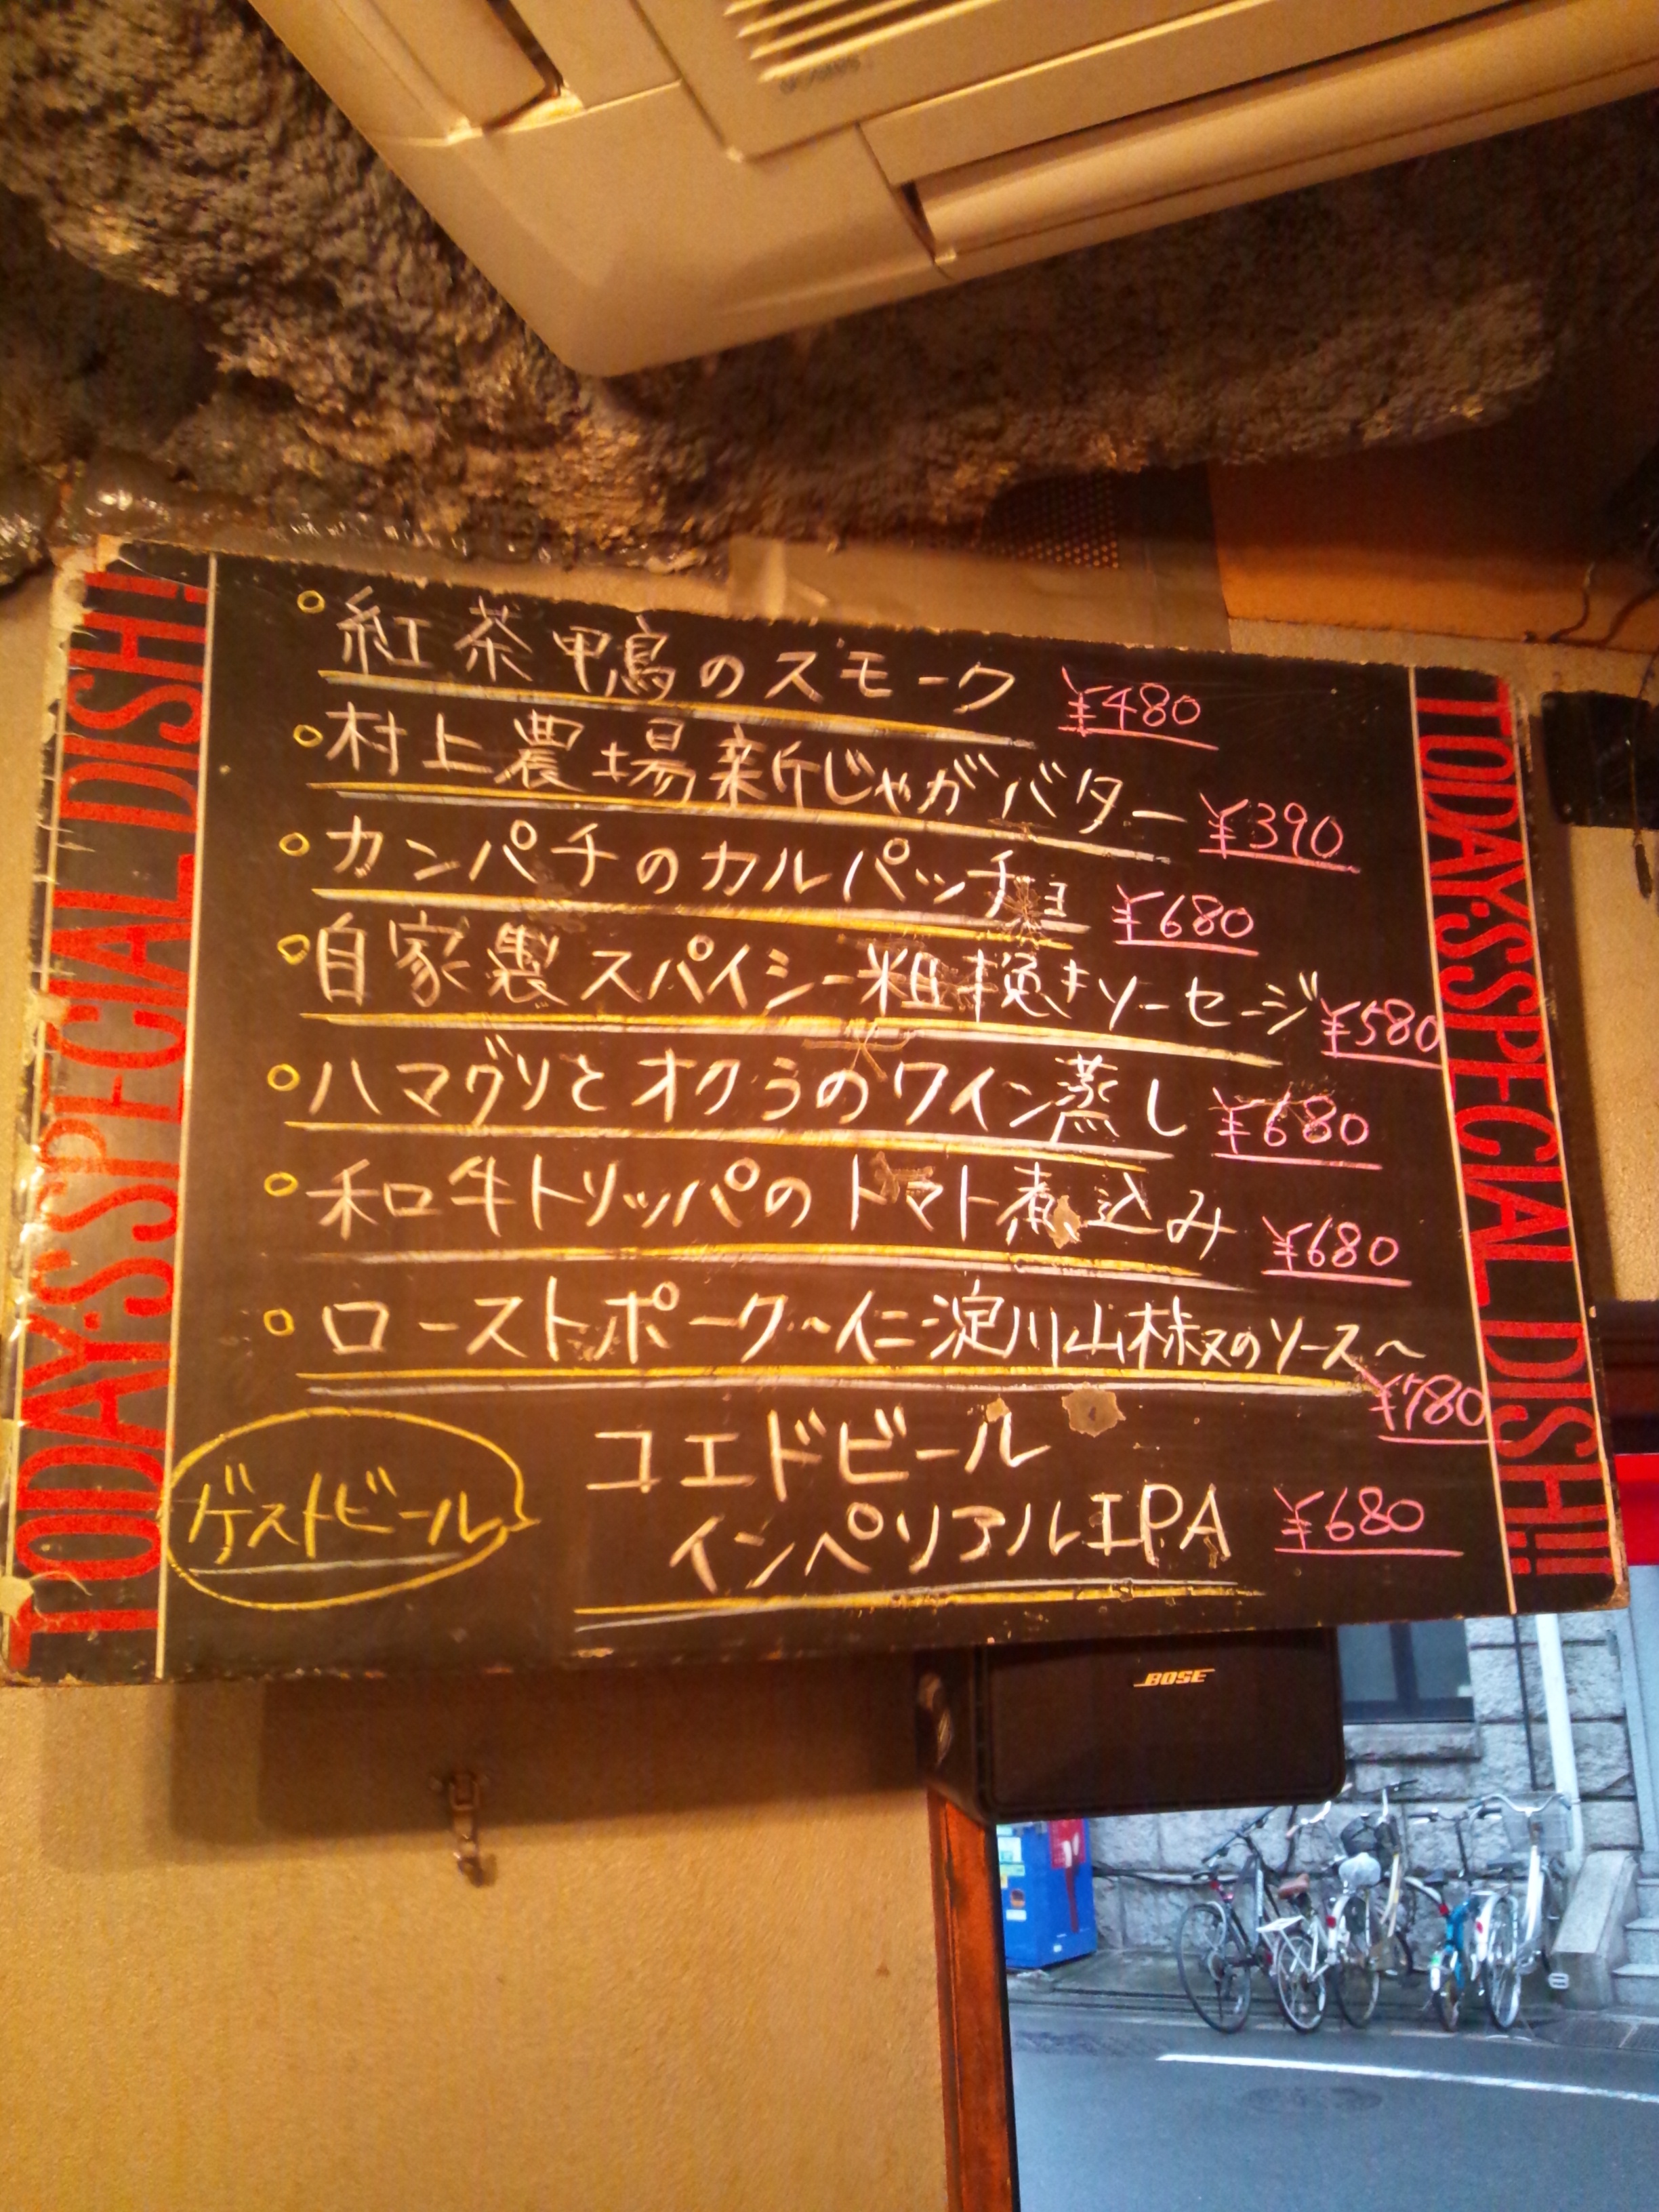 TODAY'S SPECIAL DISH!!
TODAY'S SPECIAL DISH!!
紅茶鴨のスモーク ¥480
村上農場新じゃがバター ¥390
カンパチのカルパッチョ ¥680
自家製スパイシー粗挽きソーセージ ¥580
ハマグリとオクラのワイン蒸し ¥680
和牛トリッパのトマト煮込み ¥680
ローストポーク〜仁淀川山椒のソース〜
¥780
ゲストビール
コエドビール
インペリアルIPA ¥680
BOSE